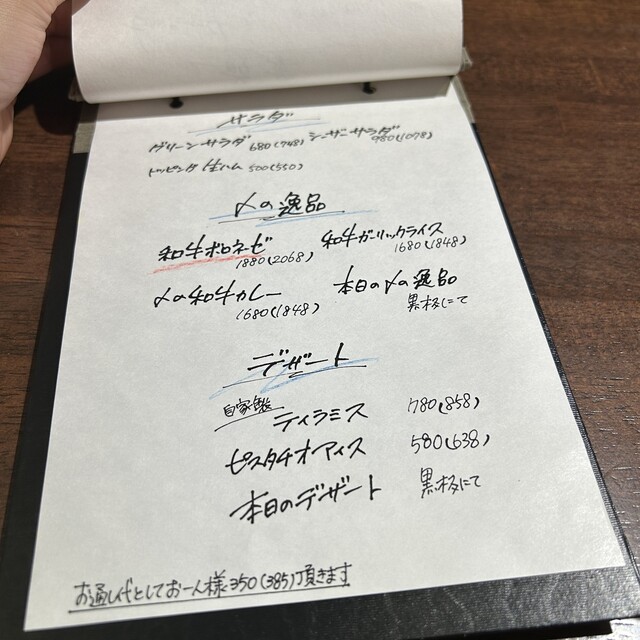 サラダ
グリーンサラダ 680(748) シーザーサラダ 980(1078)
トッピング 生ハム 500(550)
〆の逸品
和牛ボロネーゼ 1880(2068) 和牛ガーリックライス 1680(1848)
〆の和牛カレー 1680(1848) 本日の〆の逸品 黒板にて
デザート
自家製 ティラミス 780(858)
ピスタチオアイス 580(638)
本日のデザート 黒板にて
お通し代としてお一人様350(385)頂きます